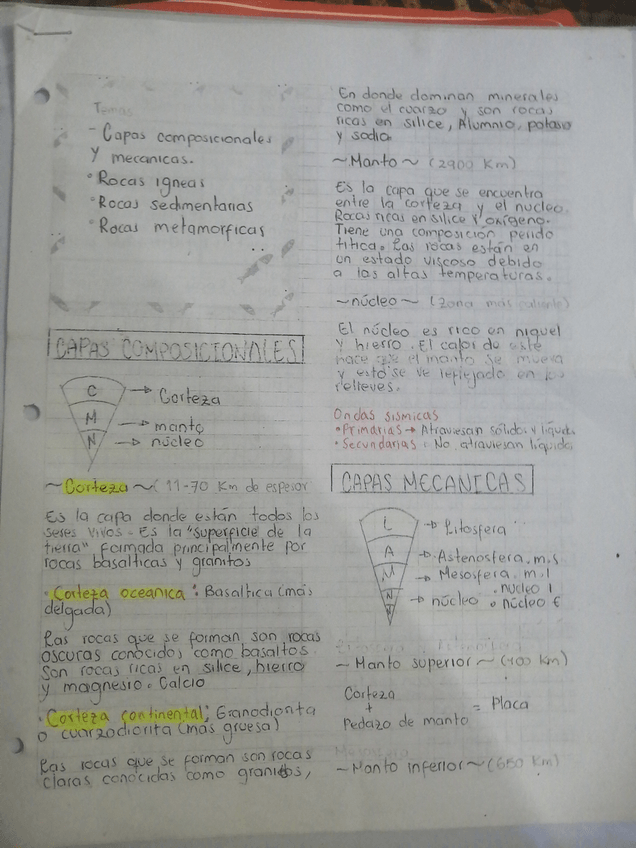 Temas
- Capas composicionales
y mecanicas.
• Rocas igneas
• Rocas sedimentarias
• Rocas metamorficas
CAPAS COMPOSICIONALES
C → Corteza
M → manto
N → núcleo
~ Corteza ~ (11-70 Km de espesor
Es la capa donde están todos los
seres vivos. Es la "superficie de la
tierra" formada principalmente por
rocas basalticas y granitos
• Corteza oceanica: Basaltica (más
delgada)
Las rocas que se forman son rocas
oscuras conocidos como basaltos.
Son rocas ricas en silice, hierro
y magnesio. Calcio
• Corteza continental; Granodiorita
o cuarzodiorita (más gruesa)
Las rocas que se forman son rocas
claras conocidas como granitos,
En donde dominan minerales
como el cuarzo y son rocas
ricas en silice, Alumnio, potasio
y sodio
~ Manto ~ (2900 Km)
Es la capa que se encuentra
entre la corteza y el nucleo.
Rocas ricas en silice y oxigeno.
Tiene una composición perido
titica. Las rocas están en
un estado viscoso debido
a las altas temperaturas.
~ núcleo ~ (zona más caliente)
El núcleo es rico en niquel
y hierro. El calor de este
hace que el manto se mueva
y esto se ve reflejado en los
relieves.
Ondas sismicas
• Primarias → Atraviesan sólidos y liquid
• Secundarias: No atraviesan liquido
CAPAS MECANICAS
L → Litosfera
A → Astenosfera. m.s
M → Mesosfera. m.I
• núcleo I
N → núcleo • núcleo E
~ Manto superior ~ (400 km)
Corteza
+ = Placa
Pedazo de manto
~ Manto inferior ~ (650 Km)